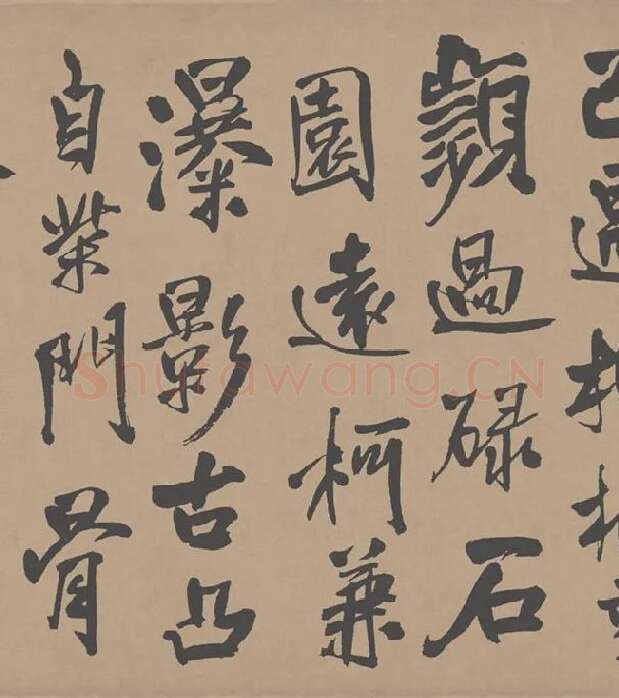 頻過碌石
園遠柯兼
瀑影古凸
自柴門骨
Shufawang.CN